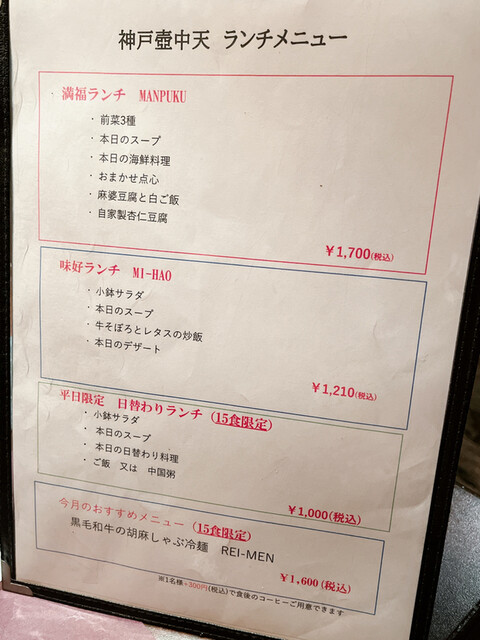 神戸壺中天 ランチメニュー
満福ランチ MANPUKU
・前菜3種
・本日のスープ
・本日の海鮮料理
・おまかせ点心
・麻婆豆腐と白ご飯
・自家製杏仁豆腐
¥1,700(税込)
味好ランチ MI-HAO
・小鉢サラダ
・本日のスープ
・牛そぼろとレタスの炒飯
・本日のデザート
¥1,210(税込)
平日限定 日替わりランチ(15食限定)
・小鉢サラダ
・本日のスープ
・本日の日替わり料理
・ご飯 又は 中国粥
¥1,000(税込)
今月のおすすめメニュー(15食限定)
黒毛和牛の胡麻しゃぶ冷麺 REI-MEN
¥1,600(税込)
※1名様+300円(税込)で食後のコーヒーご用意できます